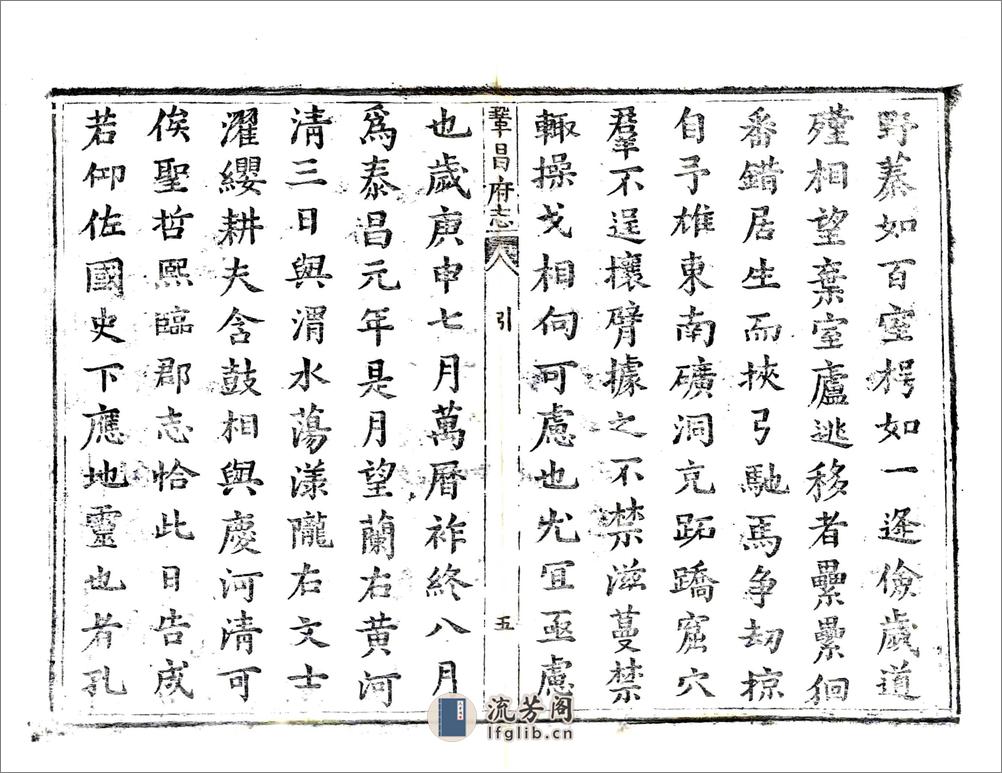 野蓁如百室楞如一逢儉歲道
殣相望棄室廬逃移者纍纍徊
番錯居生而挾弓馳焉争劫掠
自予雄東南礦洞亢跖蹻窟穴
羣不逞攘臂據之不禁滋蔓禁
輙操戈相向可慮也尤冝亟慮
鞏昌府志 引 五
也歲庚申七月萬曆祚終八月
爲泰昌元年是月望蘭右黄河
清三日與渭水蕩漾隴右文士
濯纓耕夫含鼓相與慶河清可
俟聖哲熙臨郡志恰此日告成
若仰佐國史下應地靈也者孔
流芳阁
lfglib.cn